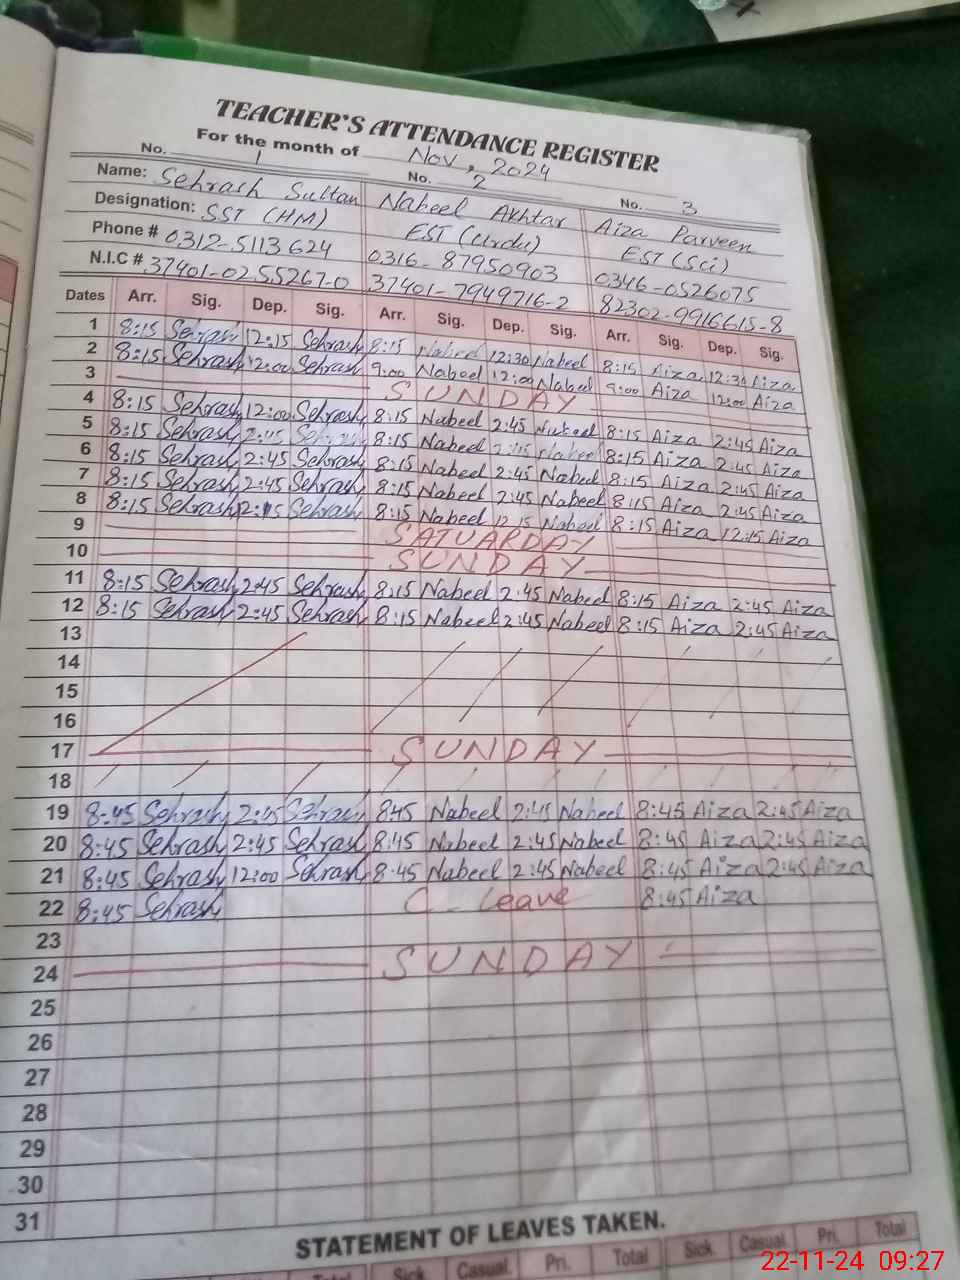 TEACHER'S ATTENDANCE REGISTER
For the month of Nov, 2024
No. 1 No. 2 No. 3
Name: Sehrash Sultan Nabeel Akhtar Aiza Parveen
Designation: SST (HM) EST (Urdu) EST (Sci)
Phone # 0312-5113624 0316-87950903 0346-0526075
N.I.C # 37401-0255267-0 37401-7949716-2 82302-9916615-8
Dates Arr. Sig. Dep. Sig. Arr. Sig. Dep. Sig. Arr. Sig. Dep. Sig.
1 8:15 Sehrash 12:15 Sehrash 8:15 Nabeel 12:30 Nabeel 8:15 Aiza 12:30 Aiza
2 8:15 Sehrash 12:00 Sehrash 9:00 Nabeel 12:00 Nabeel 9:00 Aiza 12:00 Aiza
3 SUNDAY
4 8:15 Sehrash 12:00 Sehrash 8:15 Nabeel 2:45 Nabeel 8:15 Aiza 2:45 Aiza
5 8:15 Sehrash 2:45 Sehrash 8:15 Nabeel 2:45 Nabeel 8:15 Aiza 2:45 Aiza
6 8:15 Sehrash 2:45 Sehrash 8:15 Nabeel 2:45 Nabeel 8:15 Aiza 2:45 Aiza
7 8:15 Sehrash 2:45 Sehrash 8:15 Nabeel 2:45 Nabeel 8:15 Aiza 2:45 Aiza
8 8:15 Sehrash 12:15 Sehrash 8:15 Nabeel 12:15 Nabeel 8:15 Aiza 12:15 Aiza
9 SATUARDAY
10 SUNDAY
11 8:15 Sehrash 2:45 Sehrash 8:15 Nabeel 2:45 Nabeel 8:15 Aiza 2:45 Aiza
12 8:15 Sehrash 2:45 Sehrash 8:15 Nabeel 2:45 Nabeel 8:15 Aiza 2:45 Aiza
13
14
15
16
17 SUNDAY
18
19 8:45 Sehrash 2:45 Sehrash 8:45 Nabeel 2:45 Nabeel 8:45 Aiza 2:45 Aiza
20 8:45 Sehrash 2:45 Sehrash 8:45 Nabeel 2:45 Nabeel 8:45 Aiza 2:45 Aiza
21 8:45 Sehrash 12:00 Sehrash 8:45 Nabeel 2:45 Nabeel 8:45 Aiza 2:45 Aiza
22 8:45 Sehrash C-Leave 8:45 Aiza
23
24 SUNDAY
25
26
27
28
29
30
31
STATEMENT OF LEAVES TAKEN.
Total Sick Casual Pri. Total Sick Casual Pri. Total
22-11-24 09:27